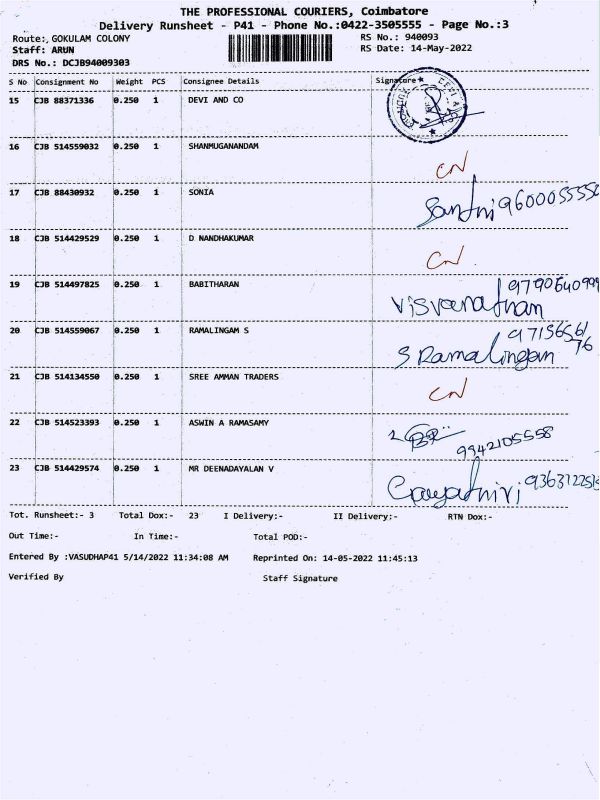 THE PROFESSIONAL COURIERS, Coimbatore
Delivery Runsheet - P41 - Phone No.:0422-3505555 - Page No.:3
Route: GOKULAM COLONY RS No.: 940093
Staff: ARUN RS Date: 14-May-2022
DRS No.: DCJB94009303
S No Consignment No Weight PCS Consignee Details Signature
15 CJB 88371336 0.250 1 DEVI AND CO
16 CJB 514559032 0.250 1 SHANMUGANANDAM CN
17 CJB 88430932 0.250 1 SONIA 9600055550
18 CJB 514429529 0.250 1 D NANDHAKUMAR CN
19 CJB 514497825 0.250 1 BABITHARAN 9790640999
Visvanathan
20 CJB 514559067 0.250 1 RAMALINGAM S 9715656176
S Ramalingam
21 CJB 514134550 0.250 1 SREE AMMAN TRADERS CN
22 CJB 514523393 0.250 1 ASWIN A RAMASAMY
9942105558
23 CJB 514429574 0.250 1 MR DEENADAYALAN V
Tot. Runsheet:- 3 Total Dox:- 23 I Delivery:- II Delivery:- RTN Dox:-
Out Time:- In Time:- Total POD:-
Entered By :VASUDHAP41 5/14/2022 11:34:08 AM Reprinted On: 14-05-2022 11:45:13
Verified By Staff Signature